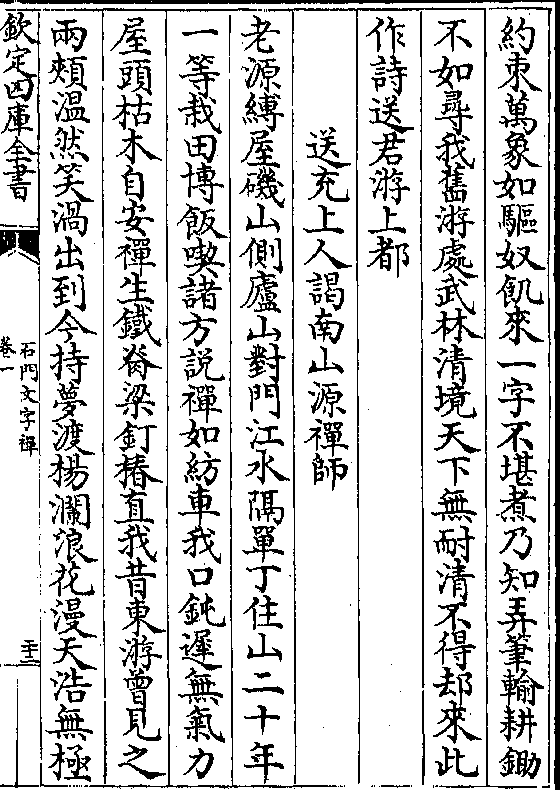 約束萬象如驅奴飢來一字不堪煮乃知弄筆輸耕鋤
不如尋我舊游處武林清境天下無耐清不得却來此
作詩送君游上都
送充上人謁南山源禪師
老源縛屋磯山側廬山對門江水隔單丁住山二十年
一等栽田博飯喫諸方說禪如紡車我口鈍遲無氣力
屋頭枯木自安禪生鐵脊梁釘樁直我昔東游曾見之
兩頰溫然笑渦出到今持夢渡楊瀾浪花漫天浩無極
欽定四庫全書
石門文字禪
卷一
二十三